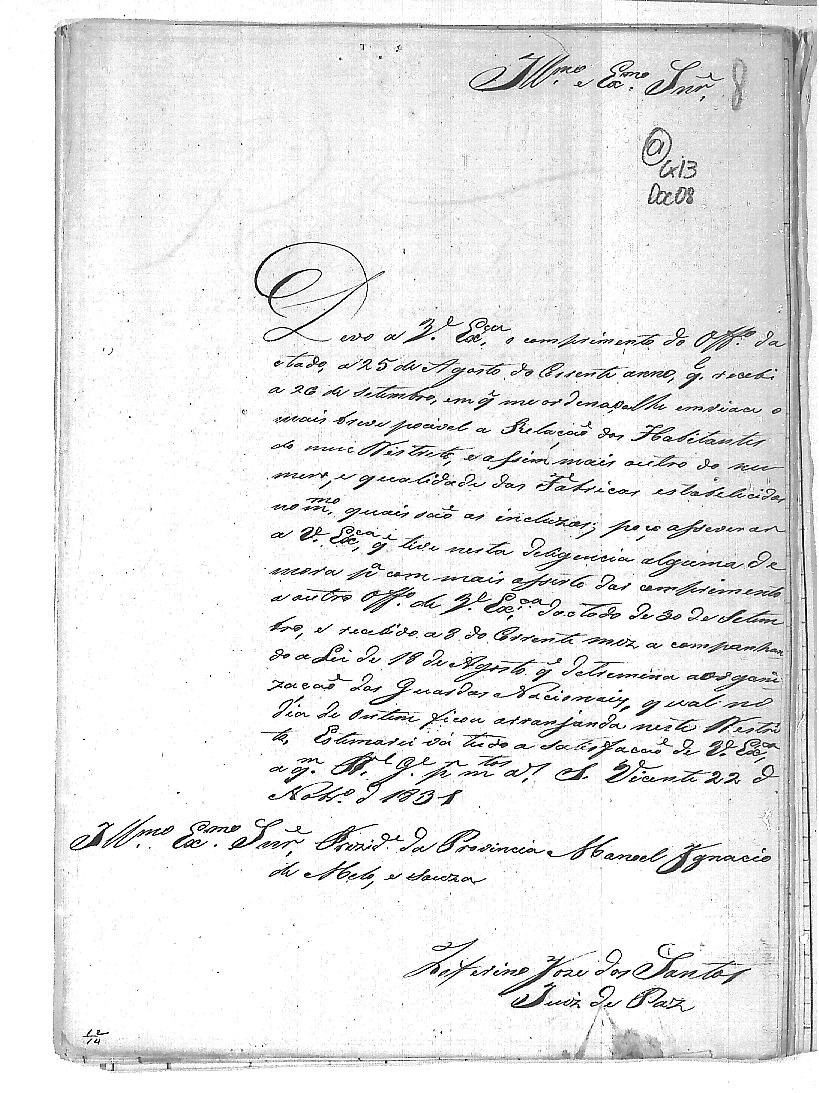 Illmo e Exmo Snr.
8
a
Cx13
Doc 08
Devo a V.ª Exca, o comprimento do Offo. da
etado, a 25 de Agosto do Corrente anno, q. recebi
a 26 de Setembro, em q̃ me ordena, lhe enviace o
mais breve pocivel a Relação dos Habitantes
do meu Destreto, e assim mais outro do nu
mero, e qualidade das Fabricas estabelicidas
no mmo. quais são as incluzas; poço asseverar
a V. Exca, q̃ tive nesta deligencia alguma de
mora pª com mais asserto dar comprimento
a outro Offo. de V.ª Exca. dactado de 30 de Setem
bro, e recebido a 8 do Corrente mez acompanhan
do a Lei de 18 de Agosto q̃ detremina a organi
zação das Guardas Nacionais, qual no
dia de ontem ficou arranjanda neste Destri
to, Estimarei vá tudo a satisfação de V. Exca,
a qm. Ds. Ge. pr. mtos. ans. S. Vicente 22 d.
Nobro. d 1831
Illmo. Exmo. Snr. Prezide. da Provincia Manoel Ignacio
de Melo, e Souza
Zeferino Joze dos Santos
Juiz de Paz
12
14